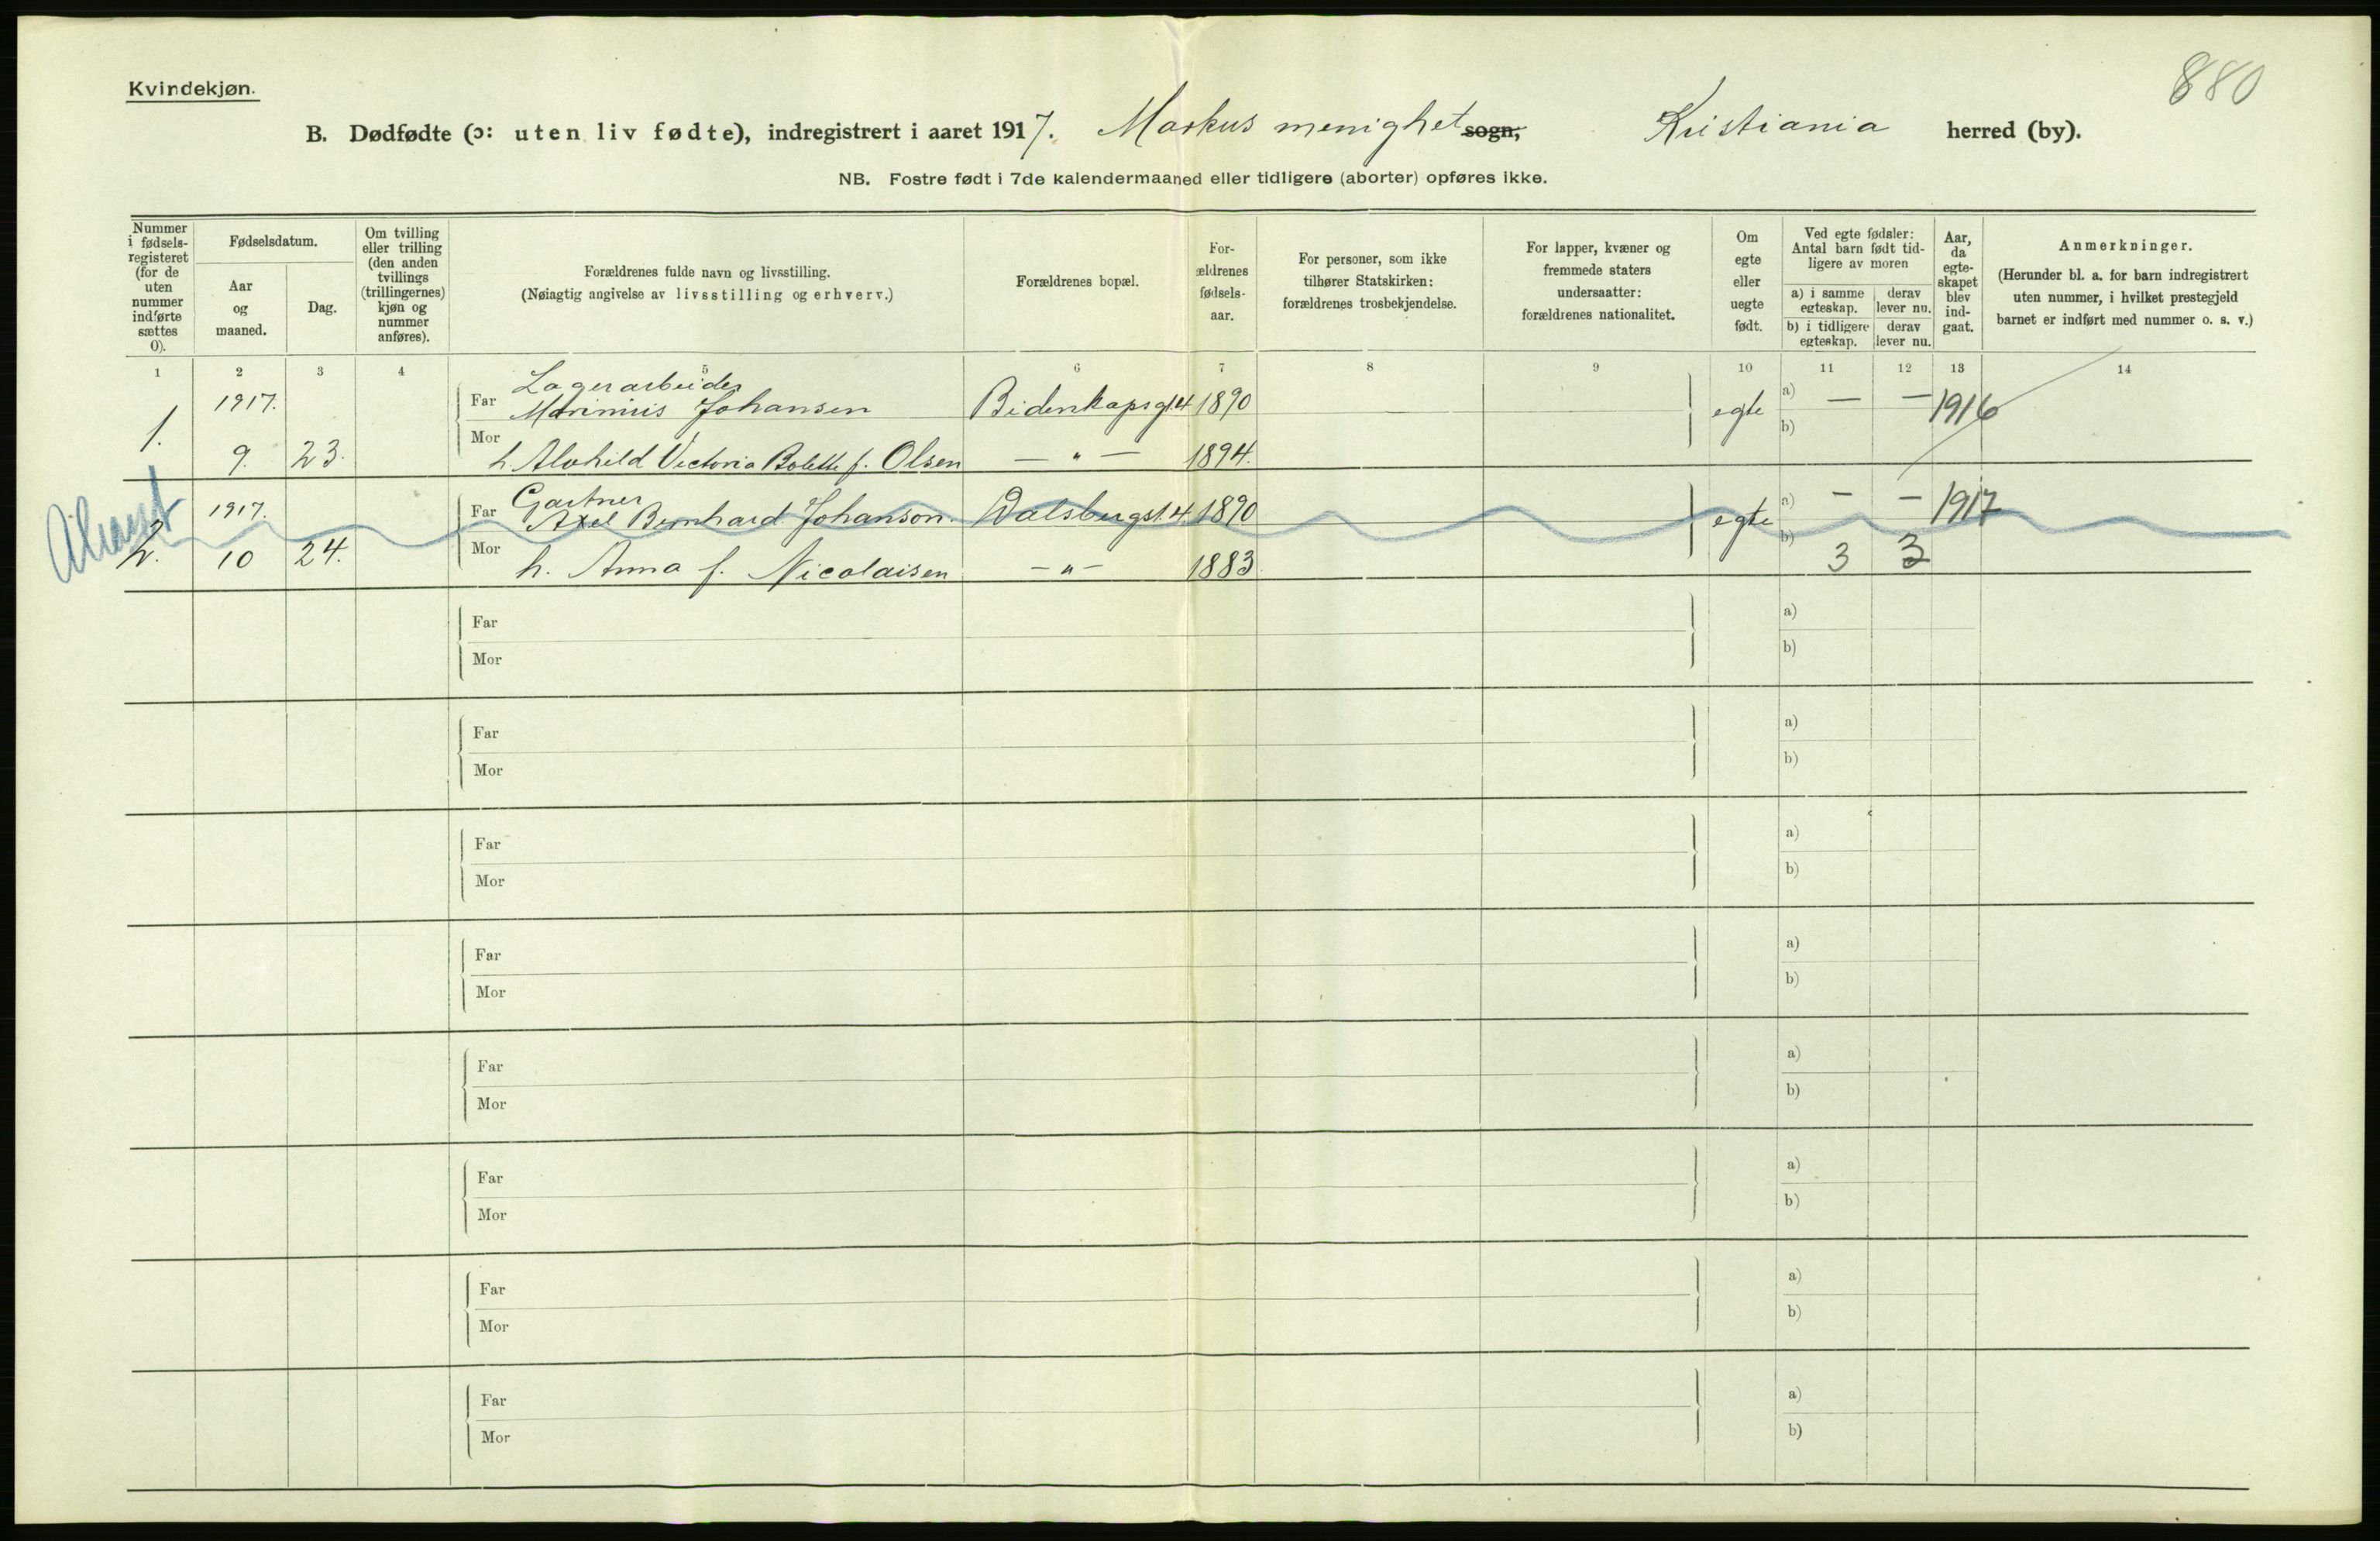 880
Kvindekjøn.
B. Dødfødte (ɔ: uten liv fødte), indregistrert i aaret 1917. Markus menighet sogn, Kristiania herred (by).
NB. Fostre født i 7de kalendermaaned eller tidligere (aborter) opføres ikke.
Nummer i fødsels-registeret (for de uten nummer indførte sættes 0).
Fødselsdatum.
Aar og maaned.
Dag.
Om tvilling eller trilling (den anden tvillings (trillingernes) kjøn og nummer anføres).
Forældrenes fulde navn og livsstilling.
(Nøiagtig angivelse av livsstilling og erhverv.)
Forældrenes bopæl.
For-ældrenes fødsels-aar.
For personer, som ikke tilhører Statskirken: forældrenes trosbekjendelse.
For lapper, kvæner og fremmede staters undersaatter: forældrenes nationalitet.
Om egte eller uegte født.
Ved egte fødsler: Antal barn født tid-ligere av moren
a) i samme egteskap.
derav lever nu.
b) i tidligere egteskap.
derav lever nu.
Aar, da egte-skapet blev ind-gaat.
Anmerkninger.
(Herunder bl. a. for barn indregistrert uten nummer, i hvilket prestegjeld barnet er indført med nummer o. s. v.)
1 2 3 4 5 6 7 8 9 10 11 12 13 14
Lagerarbeider
1917. Far Marinius Johansen Bidenkapsgt. 4 1890 egte a) — — 1916
1. b)
9. 23. Mor h. Alvhild Victoria Bolette f. Olsen — " — 1894.
Gartner
1917. Far Axel Bernhard Johanson. Dalsbergst. 4. 1890 egte a) — — 1917
2. 10 24. Mor h. Anna f. Nicolaisen — " — 1883 b) 3 3
Far a)
Mor b)
Far a)
Mor b)
Far a)
Mor b)
Far a)
Mor b)
Far a)
Mor b)
Far a)
Mor b)
Far a)
Mor b)
Far a)
Mor b)